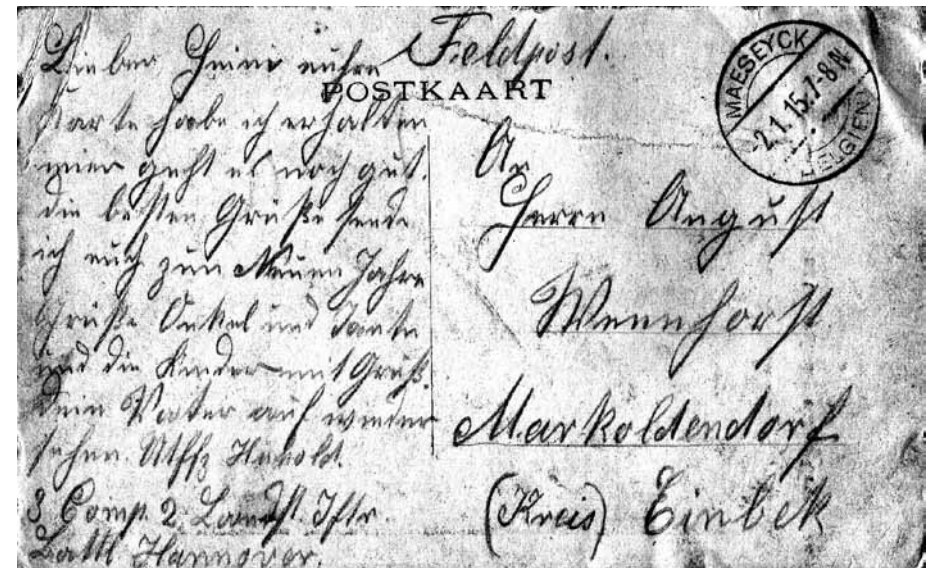 Feldpost.
POSTKAART
MAESEYCK
2.1.15.7-8N
BELGIEN
Lieber Heini
Karte habe ich erhalten
mier geht es noch gut.
die besten Grüße sende
ich euch zum Neuen Jahre
Grüße Onkel und Tante
und die Kinder mit Gruß.
Dein Vater auf wieder
sehen. Utffz
3 Comp. 2. Landst. Iftr.
Batll Hannover.
An
Herrn August
Wennhorst
Markoldendorf
(Kreis) Einbek